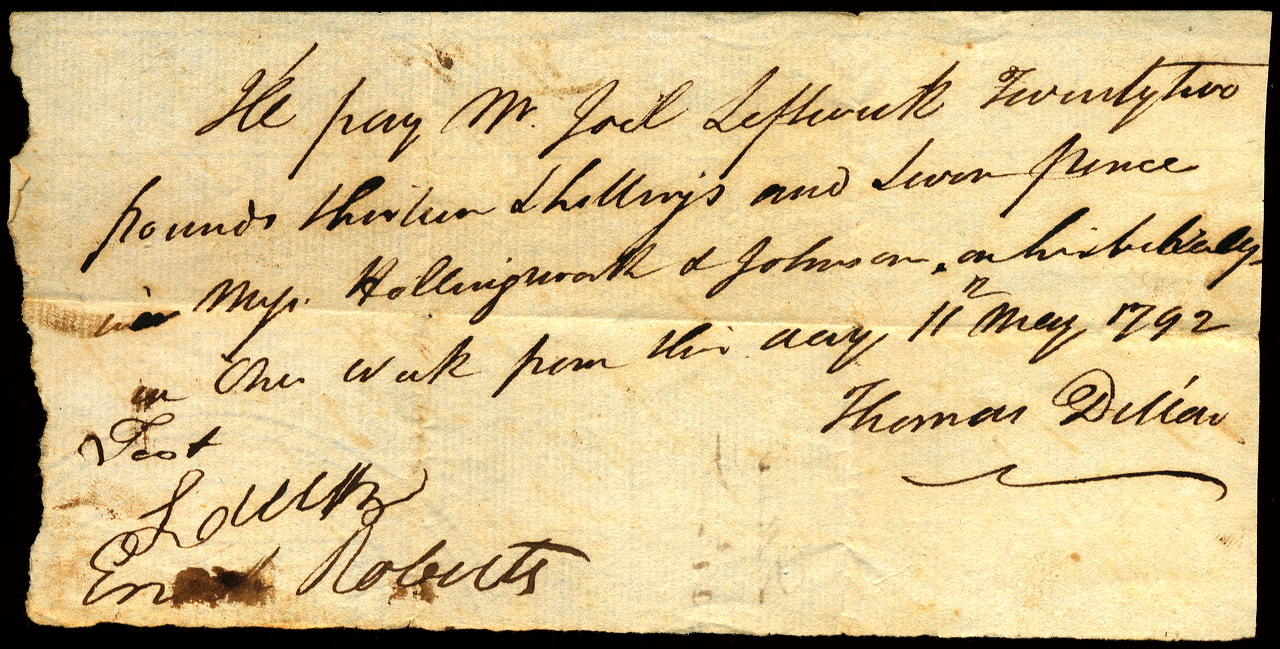 I'll pay Mr. Joel Leftwich Twenty two
pounds thirteen Shillings and Seven pence
Mess. Hollingsworth & Johnson, on his
in One Week from this day 11th May 1792
Thomas Dillar
Test
Roberts